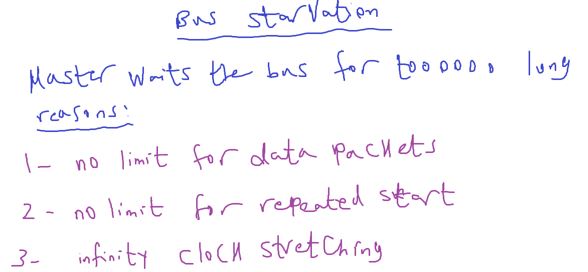 Bus starvation
Master waits the bus for toooooo long
reasons:
1- no limit for data packets
2- no limit for repeated start
3- infinity clock stretching